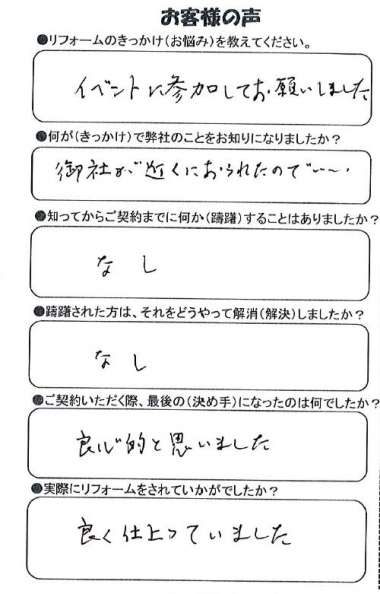 お客様の声
●リフォームのきっかけ(お悩み)を教えてください。
イベントに参加してお願いしました
●何が(きっかけ)で弊社のことをお知りになりましたか?
御社が近くにおられたので
●知ってからご契約までに何か(躊躇)することはありましたか?
なし
●躊躇された方は、それをどうやって解消(解決)しましたか?
なし
●ご契約いただく際、最後の(決め手)になったのは何でしたか?
良心的と思いました
●実際にリフォームをされていかがでしたか?
良く仕上っていました